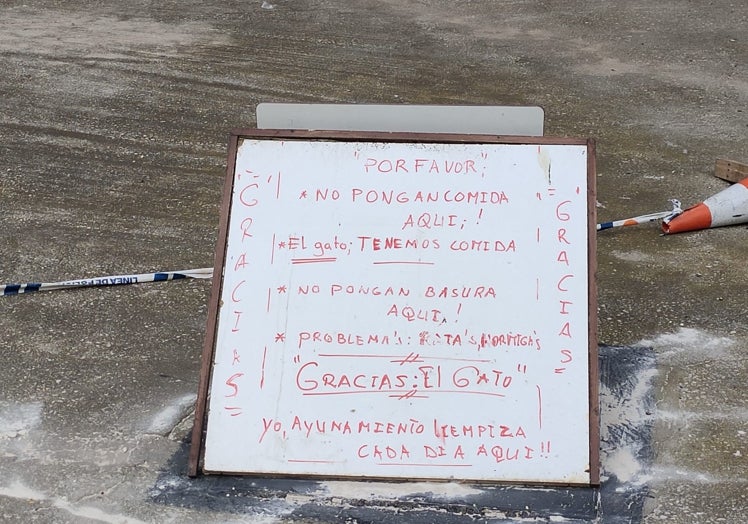 "PORFAVOR;
"GRACIAS=
* NO PONGAN COMIDA
AQUI;!
*El gato; TENEMOS COMIDA
* NO PONGAN BASURA
AQUI,!
* PROBLEMA'S: RATA'S, HORMIGA'S
"GRACIAS: El GATO"
yo, AYUNAMIENTO LIEMPIZA
CADA DIA AQUI!!
"GRACIAS=
LINEA DE POLICIA